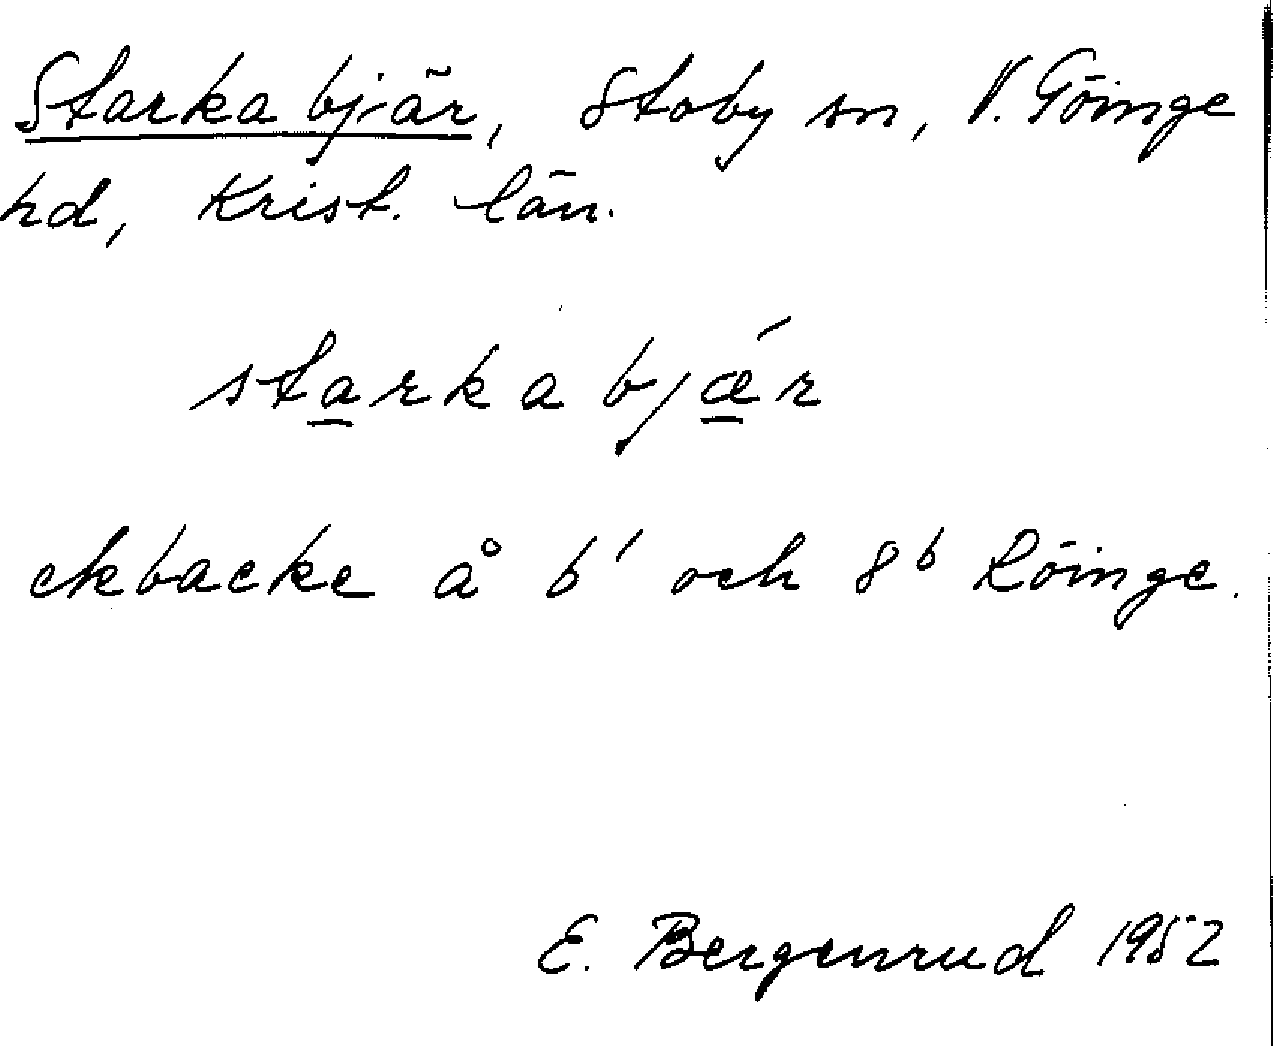 Starkabjär, Stoby sn, V. Göinge
hd, Krist. län.
starkabjǽr
ekbacke å 6' och 8b Röinge.
E. Bergenrud 1952